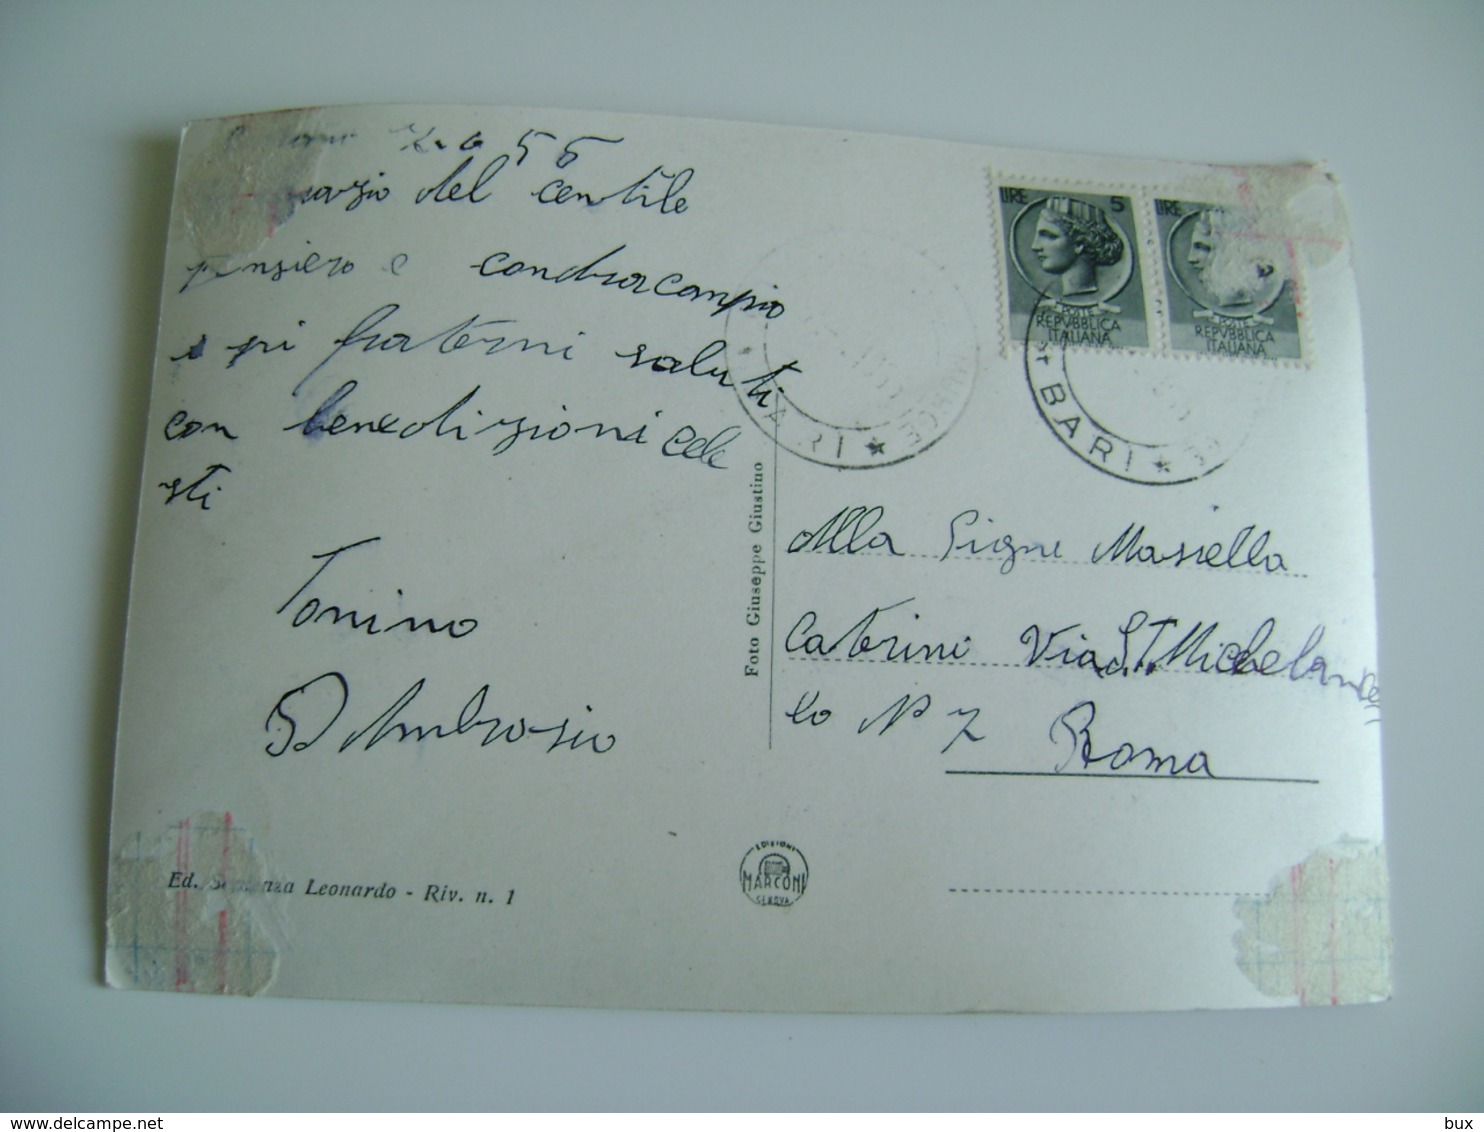 6 55
del centile
pensiero e condracanpio
e pi fraterni saluti
con benedizioni cele
sti
Tonino
D Ambrosio
LIRE 5
POSTE
REPVBBLICA
ITALIANA
LIRE
POSTE
REPVBBLICA
ITALIANA
BARI
BARI
Foto Giuseppe Giustino
Alla Signe Masiella
Caterini Via S.T. Michelange
lo N 7 Roma
Ed. Leonardo - Riv. n. 1
EDIZIONI
MARCONI
GENOVA
delcampe.net
bux